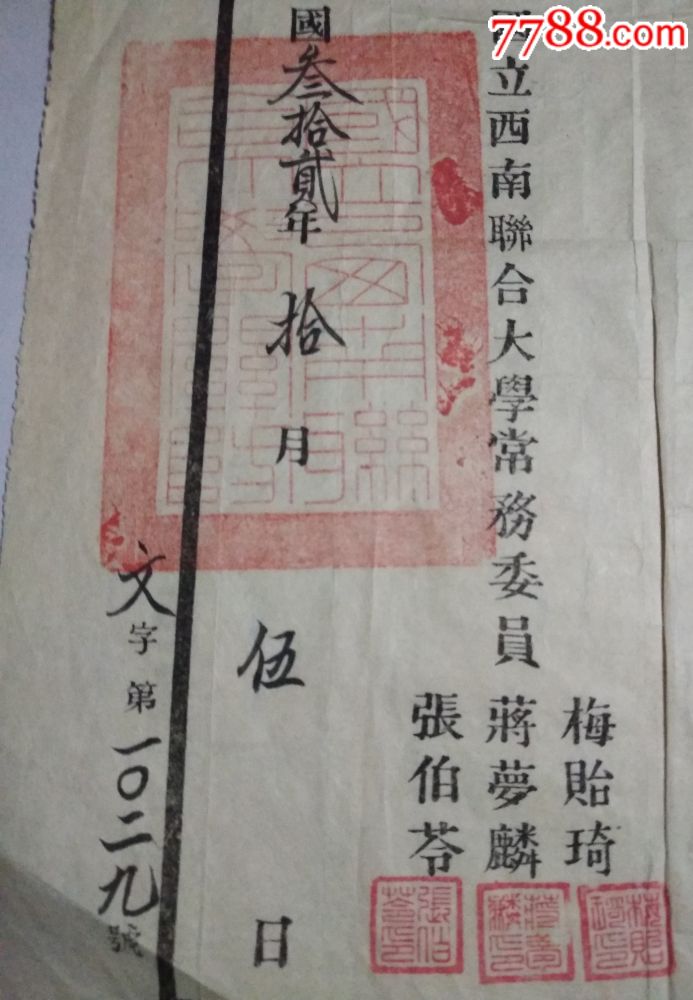 7788.com
國立西南聯合大學常務委員
梅貽琦
蔣夢麟
張伯苓
梅貽琦印
蔣夢麟印
張伯苓印
國叁拾貳年拾月伍日
文字第一〇二九號